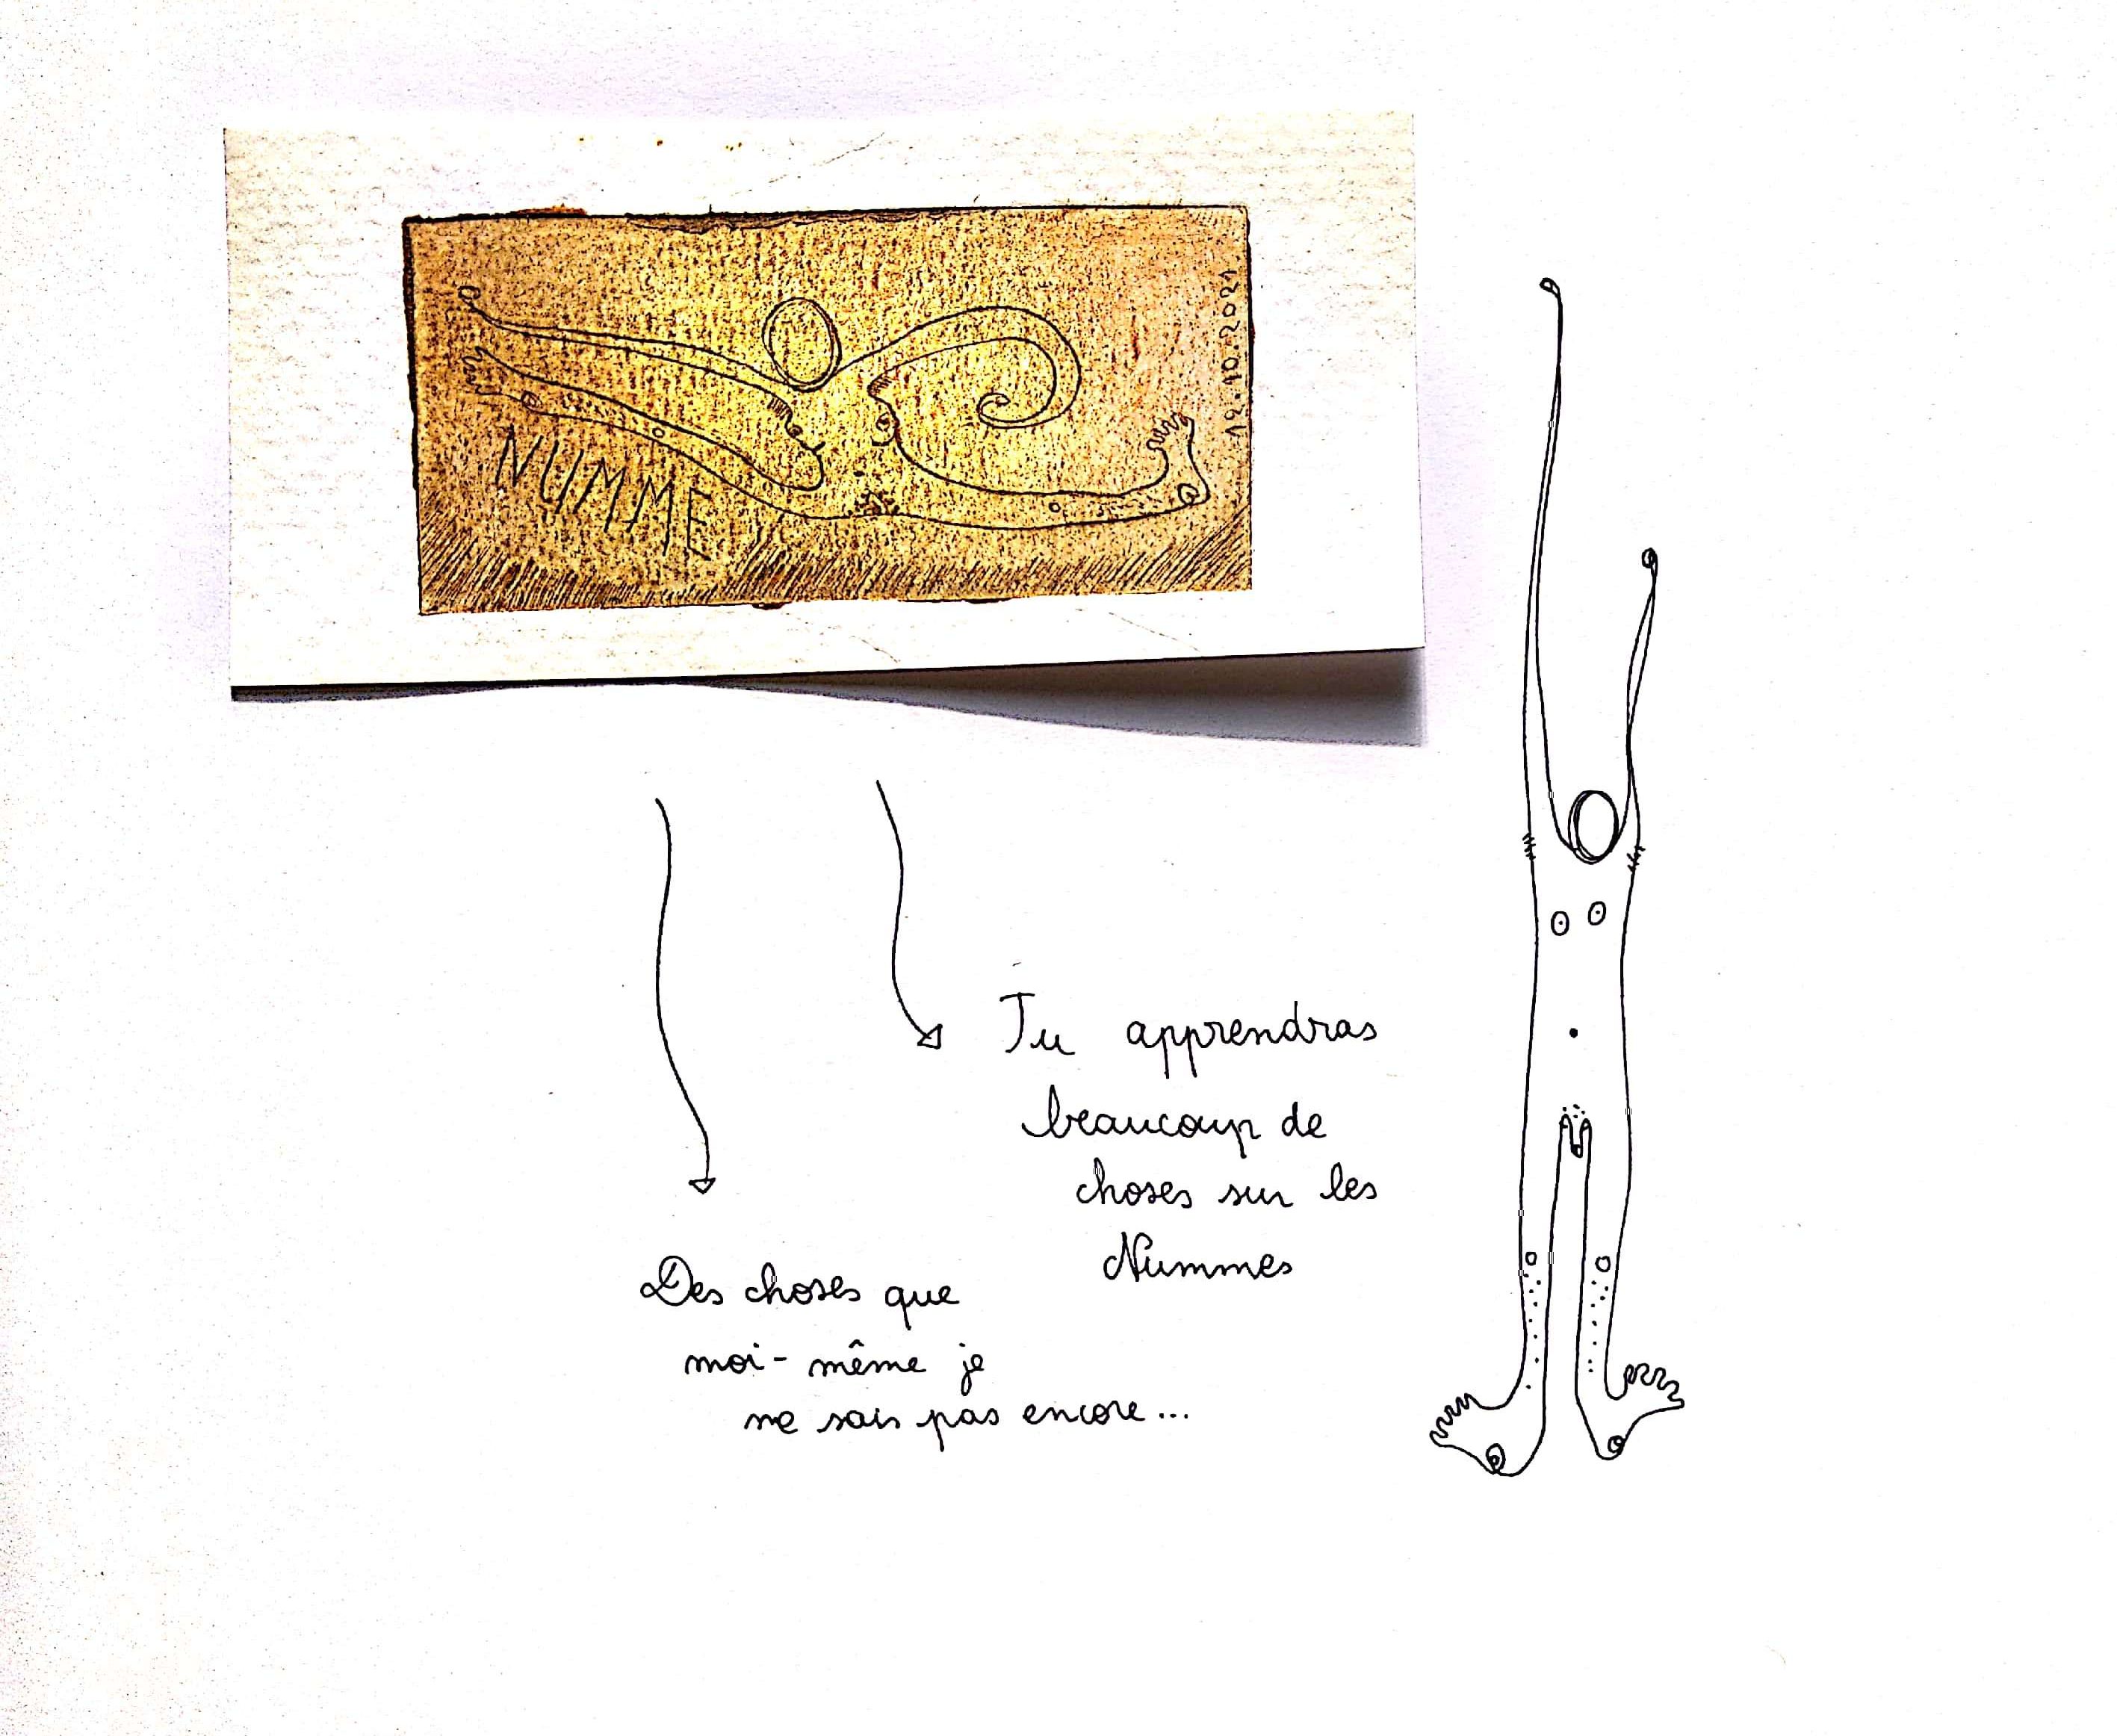 NUMME
12.10.2021.
Tu apprendras
beaucoup de
choses sur les
Nummes
Des choses que
moi-même je
ne sais pas encore...